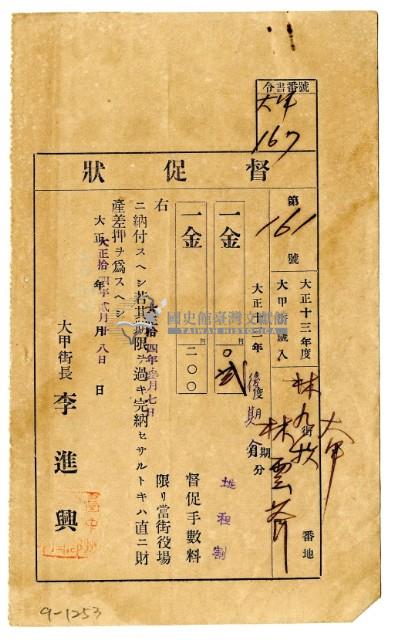 令書番號
大甲
167
督促狀
第
161
號
大正十三年度
大甲街歳入
大甲
番地
大正十三年
後期分
一金
〇貳
地租割
一金
二〇〇
督促手數料
右大正拾四年參月七日限リ當街役場
ニ納付スヘシ若其期限ヲ過キ完納セサルトキハ直ニ財
産差押ヲ爲スヘシ
大正拾四年貳月廿八日
大甲街長 李進興
國史館臺灣文獻館
TAIWAN HISTORICA
9-1253